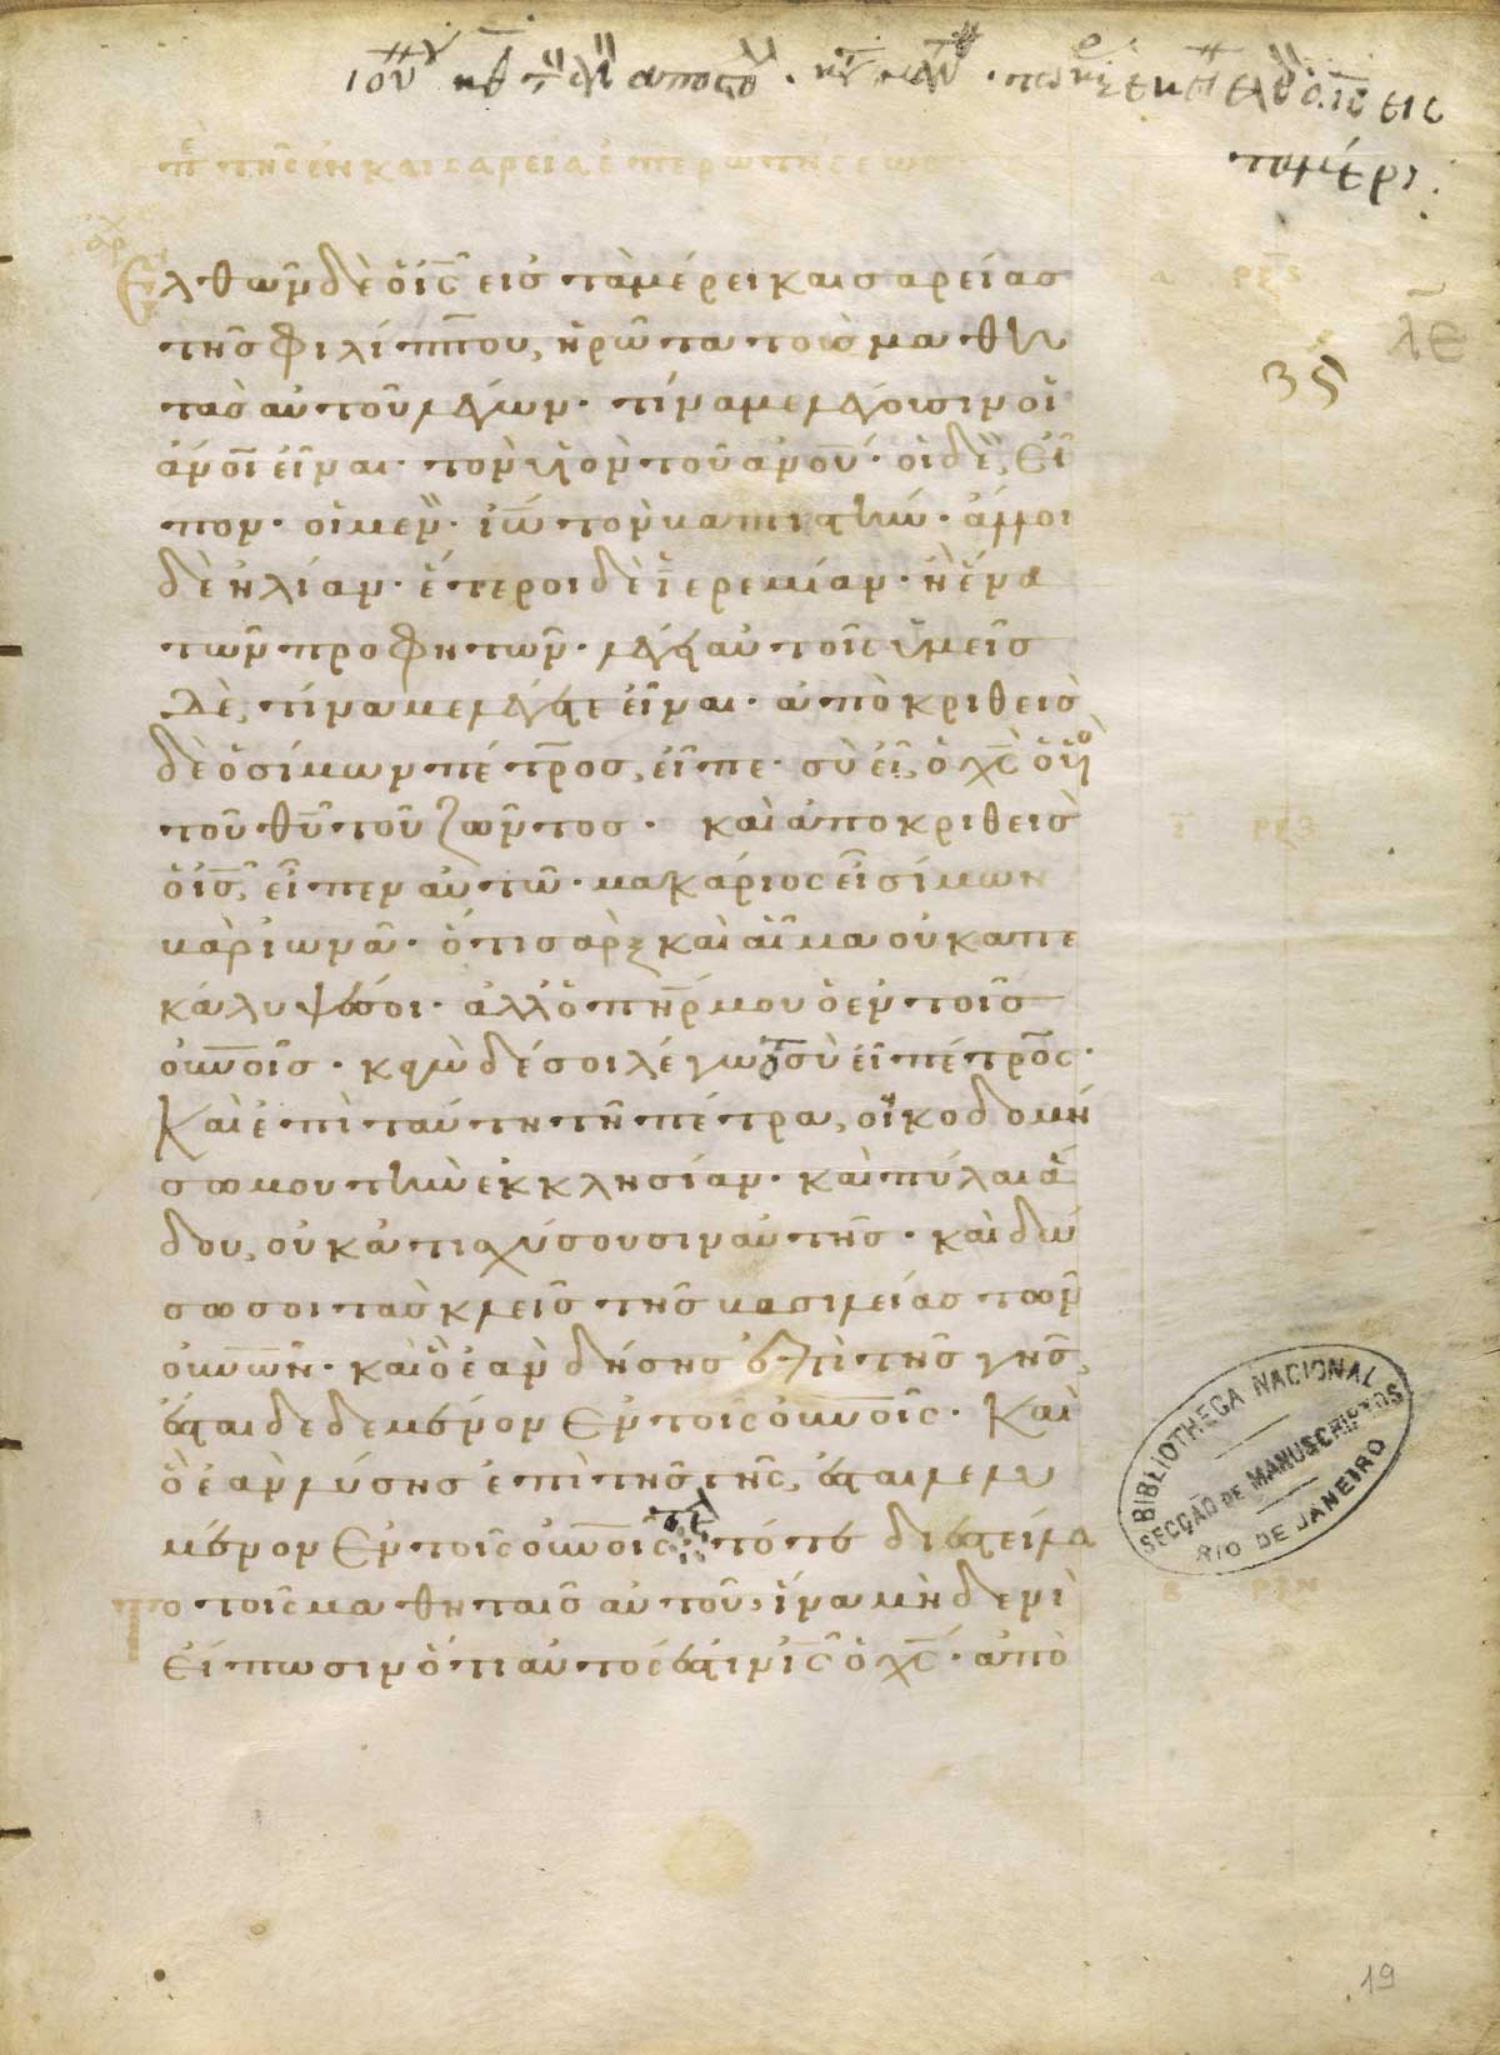 π τῆς ἐν καισαρεία ἐπερωτήσεως
τὰ μέρι
Ἐλθὼν δὲ ὁ ἰς εἰς τὰ μέρει καισαρείας
τῆς φιλίππου, ἠρώτα τοὺς μαθη
τὰς αὐτοῦ λέγων· τίνα με λέγουσιν οἱ
ἀνοι εἶναι· τὸν υἱὸν τοῦ ἀνου· οἱ δὲ, εἶ
πον· οἱ μὲν· ἰω τὸν βαπτιστὴν· ἄλλοι
δὲ ἠλίαν· ἕτεροι δὲ ἱερεμίαν· ἢ ἕνα
τῶν προφητῶν· λέγει αὐτοῖς ὑμεῖς
δὲ, τίνα με λέγετε εἶναι· ἀποκριθεὶς
δὲ ὁ σίμων πέτρος, εἶπε· σὺ εἶ, ὁ χς ὁ υἱὸ
τοῦ θυ τοῦ ζῶντος· καὶ ἀποκριθεὶς
ὁ ἰς, εἶπεν αὐτῶ· μακάριος εἶ σίμων
βὰρ ἰωνᾶ· ὅτι σὰρξ καὶ αἷμα οὐκ ἀπε
κάλυψέ σοι· ἀλλ' ὁ πηρ μου ὁ ἐν τοῖς
οὐνοις· κἀγὼ δέ σοι λέγω ὅτι σὺ εἶ πέτρος·
Καὶ ἐπὶ ταύτη τῆ πέτρα, οἰκοδομή
σω μου τὴν ἐκκλησίαν· καὶ πύλαι ἅ
δου, οὐ κατισχύσουσιν αὐτῆς· καὶ δώ
σω σοι τὰς κλεῖς τῆς βασιλείας τῶν
οὐνων· καὶ ὃ ἐὰν δήσης ἐπὶ τῆς γῆς,
ἔσται δεδεμένον ἐν τοῖς οὐνοις· Καὶ
ὃ ἐὰν λύσης ἐπὶ τῆς γῆς, ἔσται λελυ
μένον ἐν τοῖς οὐνοις· τότε διεστείλα
το τοῖς μαθηταῖς αὐτοῦ, ἵνα μηδενὶ
εἴπωσιν ὅτι αὐτός ἐστιν ἰς ὁ χς· ἀπὸ
λε
35
BIBLIOTHECA NACIONAL
SECÇÃO DE MANUSCRIPTOS
RIO DE JANEIRO
19